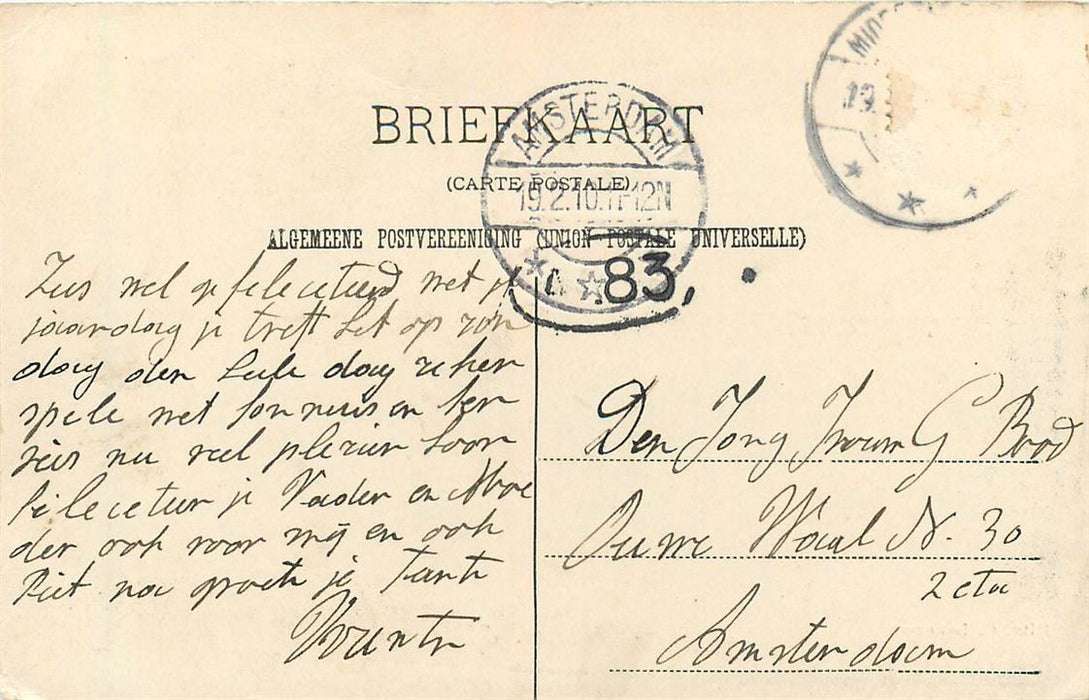 BRIEFKAART
(CARTE POSTALE)
ALGEMEENE POSTVEREENIGING (UNION POSTALE UNIVERSELLE)
AMSTERDAM
19.2.10.11-12N
83,
MIDD
19.
Zus wel gefeleceteerd met je
jaardag je treft het op zon
dag den heele dag zeker
spele met
nu veel plezier hoor
feleceteer je Vader en Moe
der ook voor mij en ook
Piet na groeten je Tante
Den Jong Jrouw G Brood
Ouwe Waal N. 30
2 eta
Amsterdam